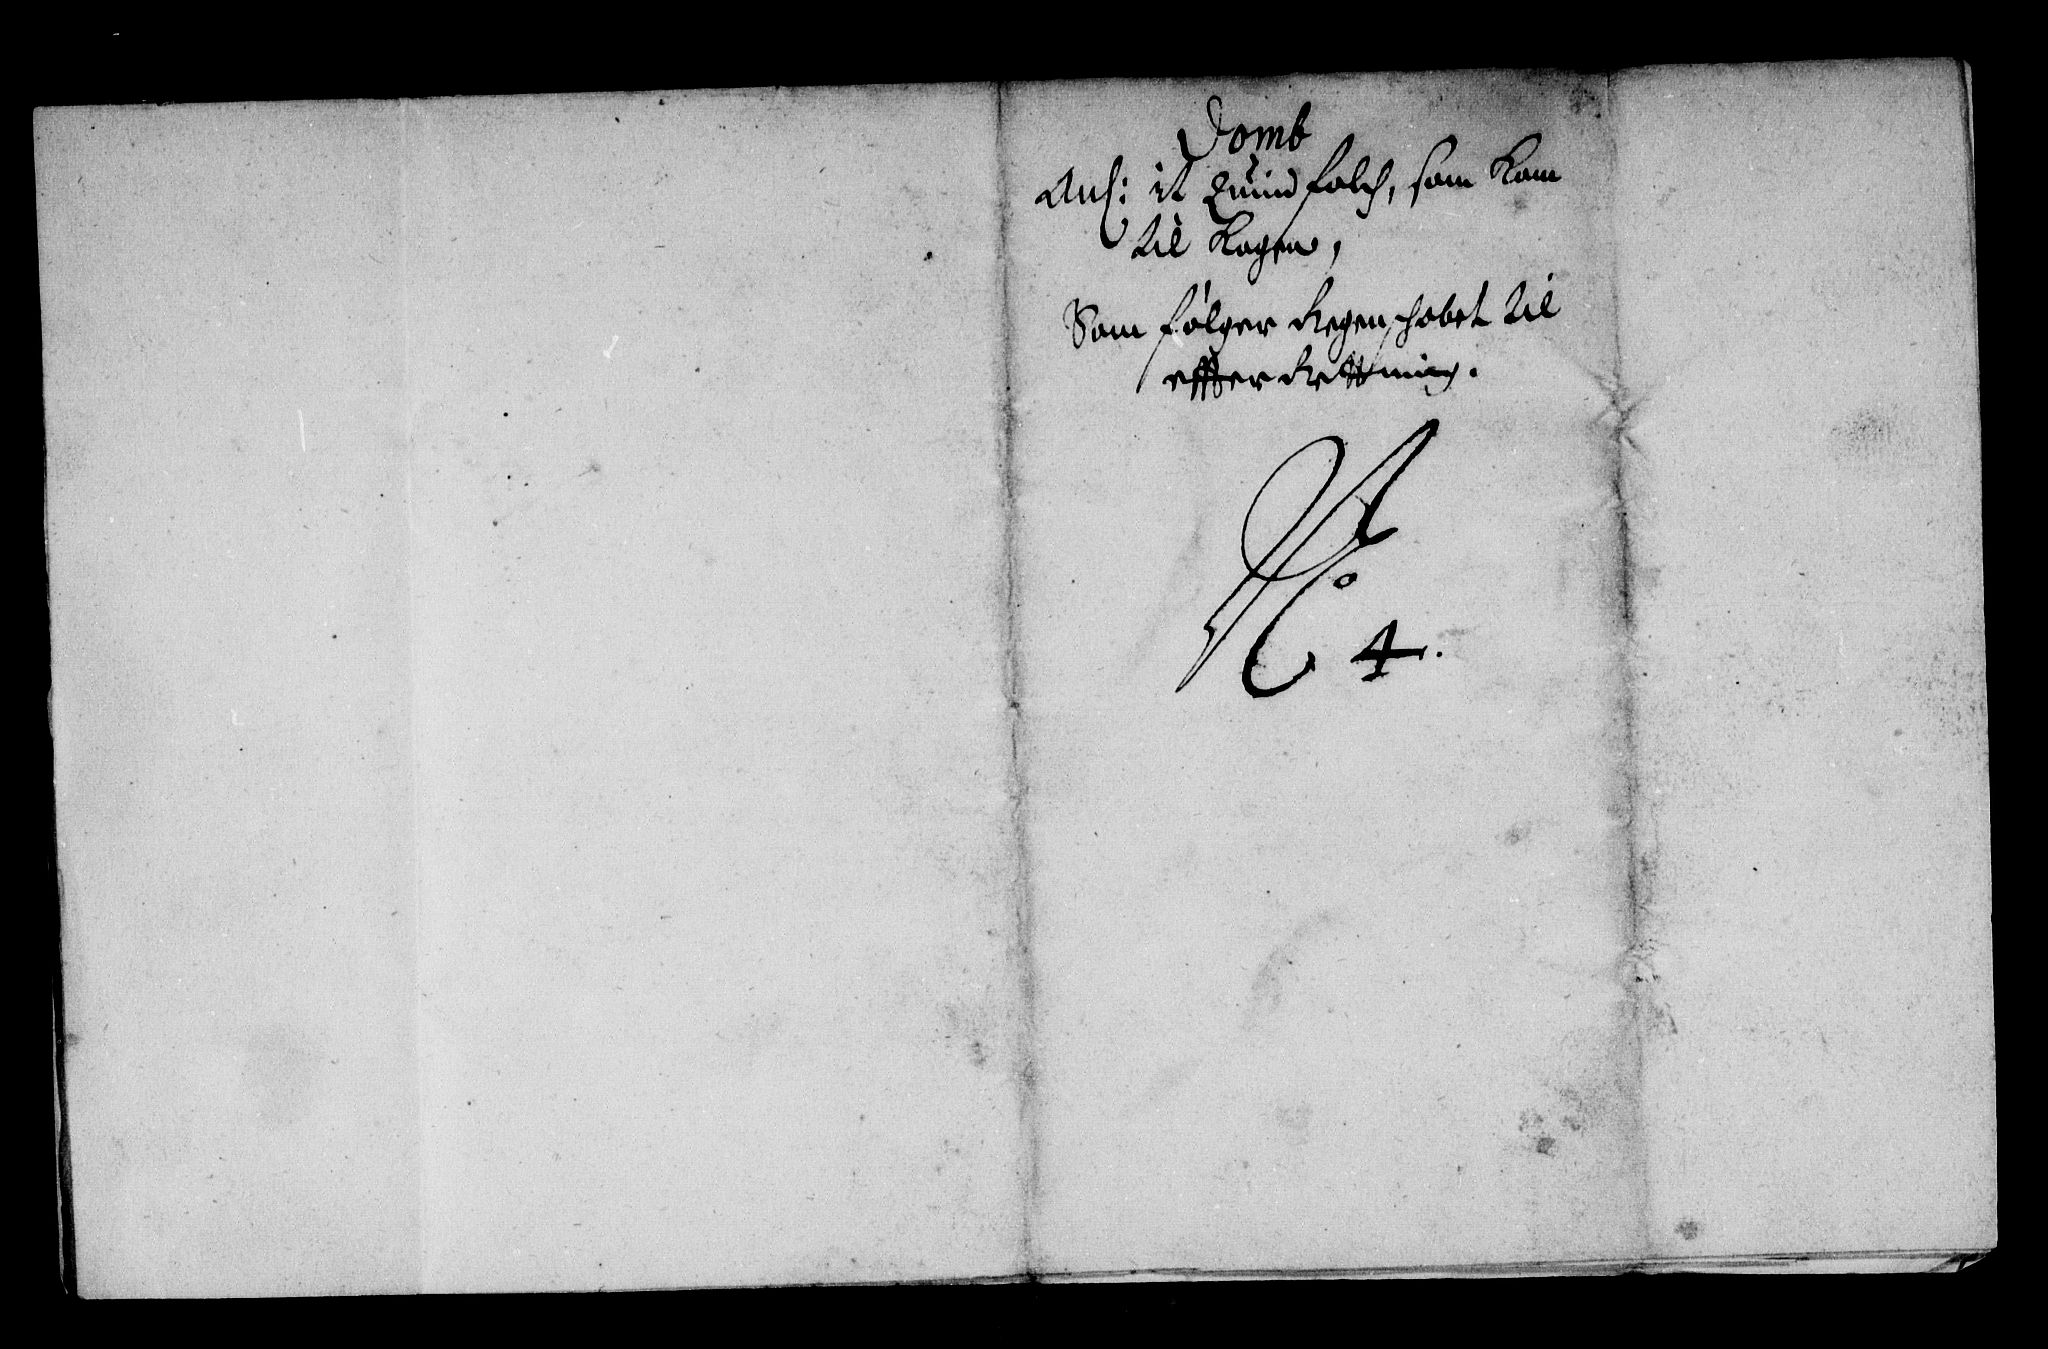 Domb
Anl: it Quindfolch, som kom
til kagen,
Som følger Regenschabet til
effterRettning.
No 4.